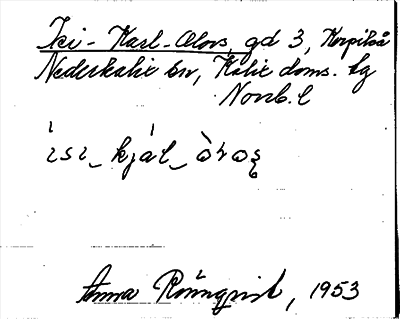 Isi-Karl-Olovs, gd 3, Korpilså
Nederkalix sn, Kalix doms. lg
Norrb. l
Anna Rönnqvist, 1953